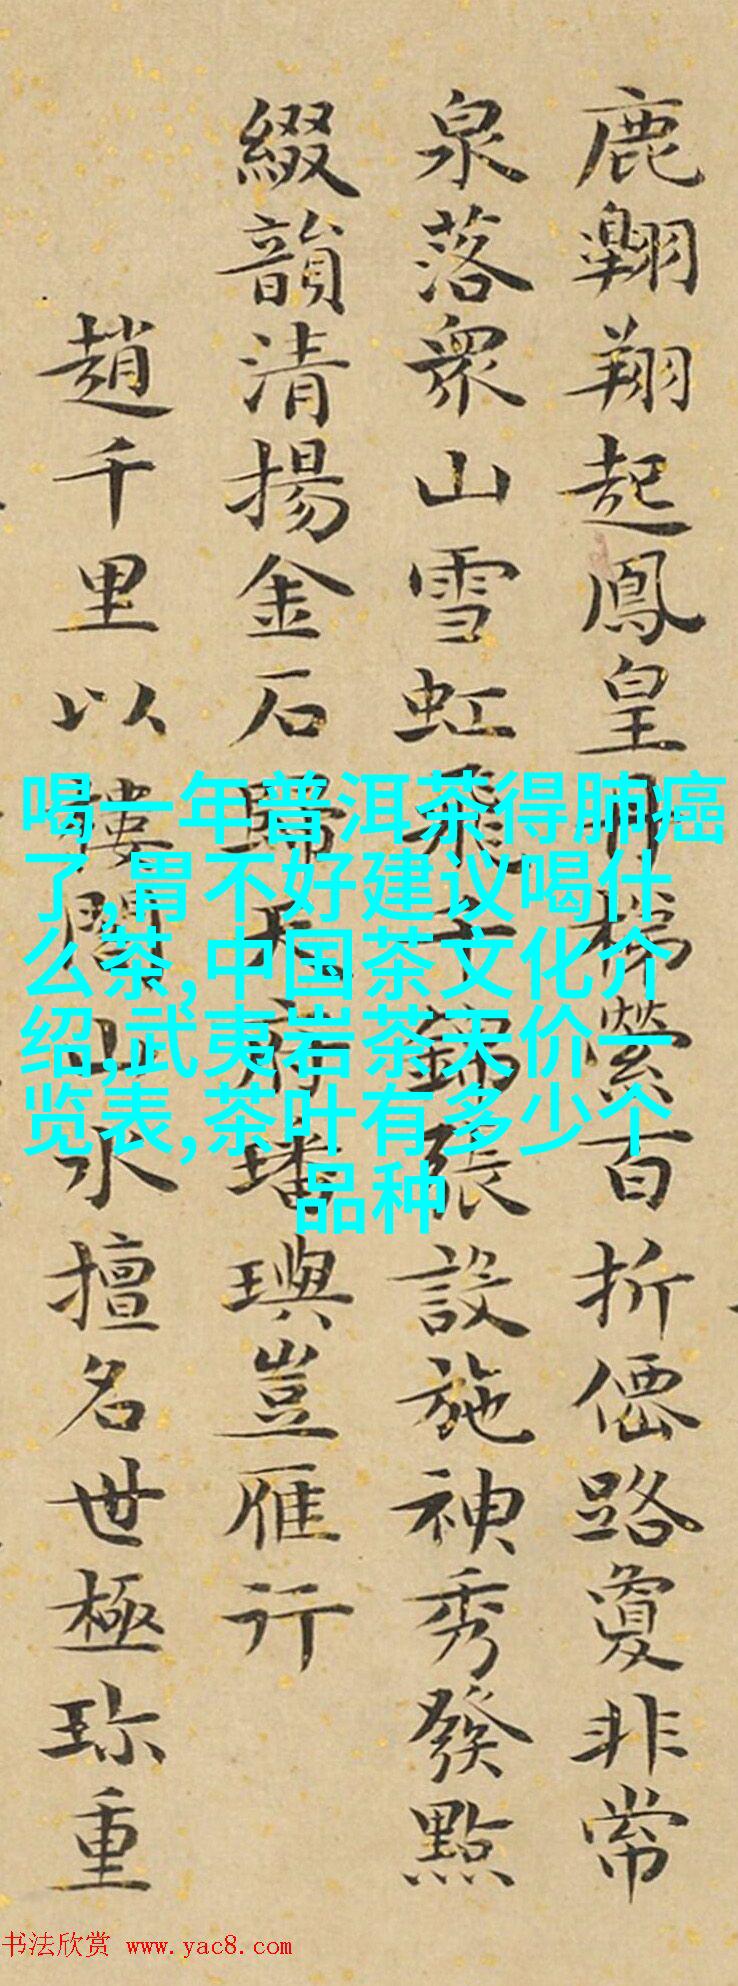 鹿翺翔起鳳皇丹梯縈百折僊路敻非常
泉落衆山雪虹飛千錦張設施神秀發點
綴韻清揚金石歸天府璠璵豈雁行
趙千里以樓閣山水擅名世極珍重
喝一年普洱茶得肺癌
了,胃不好建议喝什
么茶,中国茶文化介
绍,武夷岩茶天价一
览表,茶叶有多少个
品种
书法欣赏 www.yac8.com